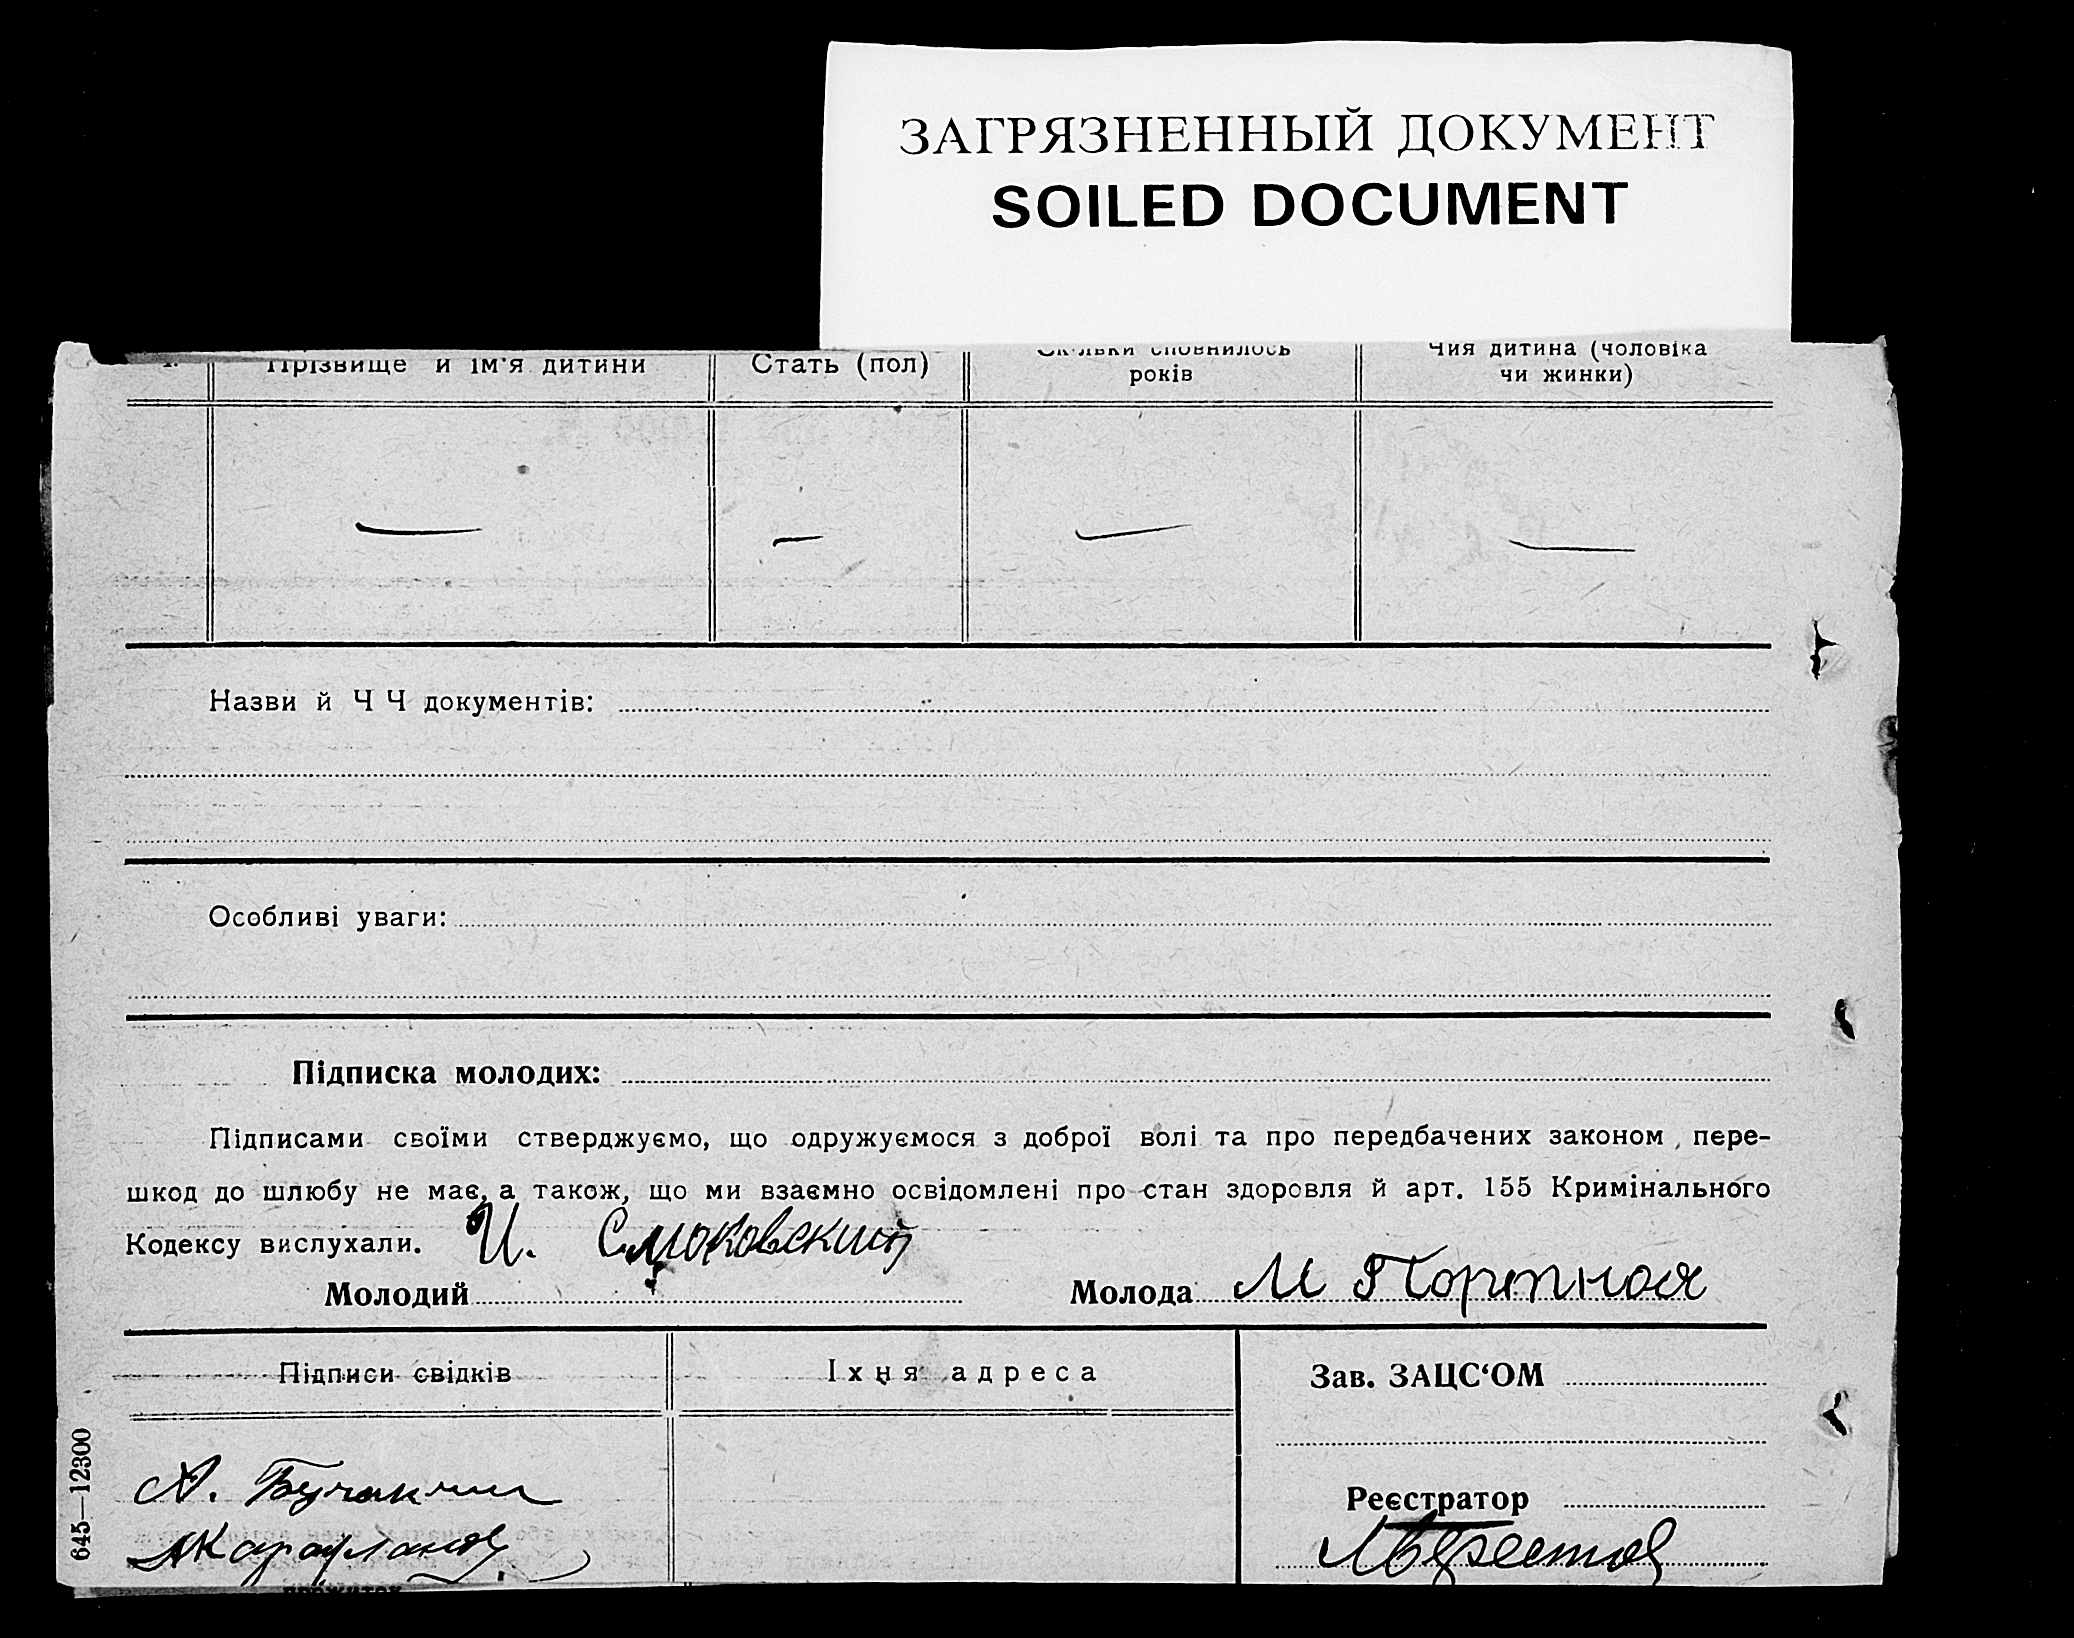 ЗАГРЯЗНЕННЫЙ ДОКУМЕНТ
SOILED DOCUMENT
Прізвище й ім'я дитини
Стать (пол)
Скільки сповнилось
років
Чия дитина (чоловіка
чи жинки)
— — — —
Назви й Ч Ч документів:
Особливі уваги:
Підписка молодих:
Підписами своїми стверджуємо, що одружуємося з доброї волі та про передбачених законом, пере-
шкод до шлюбу не має, а також, що ми взаємно освідомлені про стан здоровля й арт. 155 Кримінального
Кодексу вислухали.
И. Смоковский
Молодий
Молода М Портная
Підписи свідків
Їхня адреса
Зав. ЗАЦС‘ОМ
А.
Реєстратор
645—12300